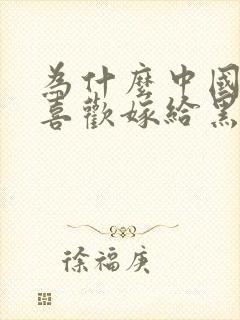 為什麼中國
喜歡嫁給黑
徐福庚